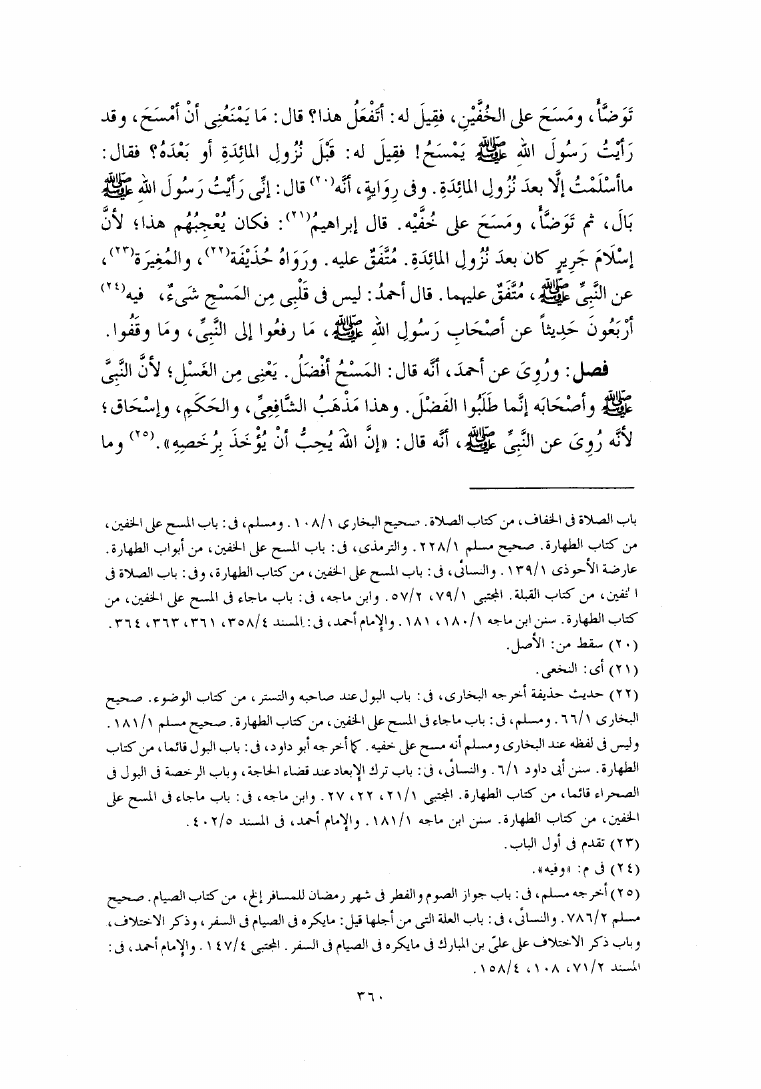 تَوَضَّأَ، ومَسَحَ على الخُفَّيْنِ، فقِيلَ له: أتَفْعَلُ هذا؟ قال: مَا يَمْنَعُنِى أنْ أمْسَحَ، وقد
رَأيْتُ رَسُولَ اللهِ ﷺ يَمْسَحُ! فقِيلَ له: قَبْلَ نُزُولِ المائِدَةِ أو بَعْدَهُ؟ فقال:
ماأسْلَمْتُ إلَّا بعدَ نُزُولِ المائِدَةِ. وفى رِوَايةٍ، أنَّه(٢٠) قال: إنِّى رَأيْتُ رَسُولَ اللهِ ﷺ
بَالَ، ثم تَوَضَّأَ، ومَسَحَ على خُفَّيْه. قال إبراهيمُ(٢١): فكان يُعْجِبُهُم هذا؛ لأنَّ
إسْلَامَ جَرِيرٍ كان بعدَ نُزُولِ المائِدَةِ. مُتَّفَقٌ عليه. ورَوَاهُ حُذَيْفَة(٢٢)، والمُغِيرَة(٢٣)،
عن النَّبِىِّ ﷺ، مُتَّفَقٌ عليهما. قال أحمدُ: ليس فى قَلْبِى مِن المَسْحِ شَىءٌ، فيه(٢٤)
أرْبَعُونَ حَدِيثاً عن أصْحَابِ رَسُولِ اللهِ ﷺ، مَا رفعُوا إلى النَّبِىِّ، ومَا وقَفُوا.
فصل: ورُوِىَ عن أحمدَ، أنَّه قال: المَسْحُ أفْضَلُ. يَعْنِى مِن الغَسْلِ؛ لأنَّ النَّبِىَّ
ﷺ وأصْحَابَه إنَّما طَلَبُوا الفَضْلَ. وهذا مَذْهَبُ الشَّافِعِىِّ، والحَكَمِ، وإسْحَاق؛
لأنَّه رُوِىَ عن النَّبِىِّ ﷺ، أنَّه قال: «إنَّ اللهَ يُحِبُّ أنْ يُؤْخَذَ بِرُخَصِهِ».(٢٥) وما
باب الصلاة فى الخفاف، من كتاب الصلاة. صحيح البخارى ١٠٨/١. ومسلم، فى: باب المسح على الخفين،
من كتاب الطهارة. صحيح مسلم ٢٢٨/١. والترمذى، فى: باب المسح على الخفين، من أبواب الطهارة.
عارضة الأحوذى ١٣٩/١. والنسائى، فى: باب المسح على الخفين، من كتاب الطهارة، وفى: باب الصلاة فى
الخفين، من كتاب القبلة. المجتبى ٧٩/١، ٥٧/٢. وابن ماجه، فى: باب ماجاء فى المسح على الخفين، من
كتاب الطهارة. سنن ابن ماجه ١٨٠/١، ١٨١. والإمام أحمد، فى: المسند ٣٥٨/٤، ٣٦١، ٣٦٣، ٣٦٤.
(٢٠) سقط من: الأصل.
(٢١) أى: النخعى.
(٢٢) حديث حذيفة أخرجه البخارى، فى: باب البول عند صاحبه والتستر، من كتاب الوضوء. صحيح
البخارى ٦٦/١. ومسلم، فى: باب ماجاء فى المسح على الخفين، من كتاب الطهارة. صحيح مسلم ١٨١/١.
وليس فى لفظه عند البخارى ومسلم أنه مسح على خفيه. كما أخرجه أبو داود، فى: باب البول قائما، من كتاب
الطهارة. سنن أبى داود ٦/١. والنسائى، فى: باب ترك الإبعاد عند قضاء الحاجة، وباب الرخصة فى البول فى
الصحراء قائما، من كتاب الطهارة. المجتبى ٢١/١، ٢٢، ٢٧. وابن ماجه، فى: باب ماجاء فى المسح على
الخفين، من كتاب الطهارة. سنن ابن ماجه ١٨١/١. والإمام أحمد، فى المسند ٤٠٢/٥.
(٢٣) تقدم فى أول الباب.
(٢٤) فى م: «وفيه».
(٢٥) أخرجه مسلم، فى: باب جواز الصوم والفطر فى شهر رمضان للمسافر إلخ، من كتاب الصيام. صحيح
مسلم ٧٨٦/٢. والنسائى، فى: باب العلة التى من أجلها قيل: مايكره فى الصيام فى السفر، وذكر الاختلاف،
وباب ذكر الاختلاف على علىّ بن المبارك فى مايكره فى الصيام فى السفر. المجتبى ١٤٧/٤. والإمام أحمد، فى:
المسند ٧١/٢، ١٠٨، ١٥٨/٤.
٣٦٠